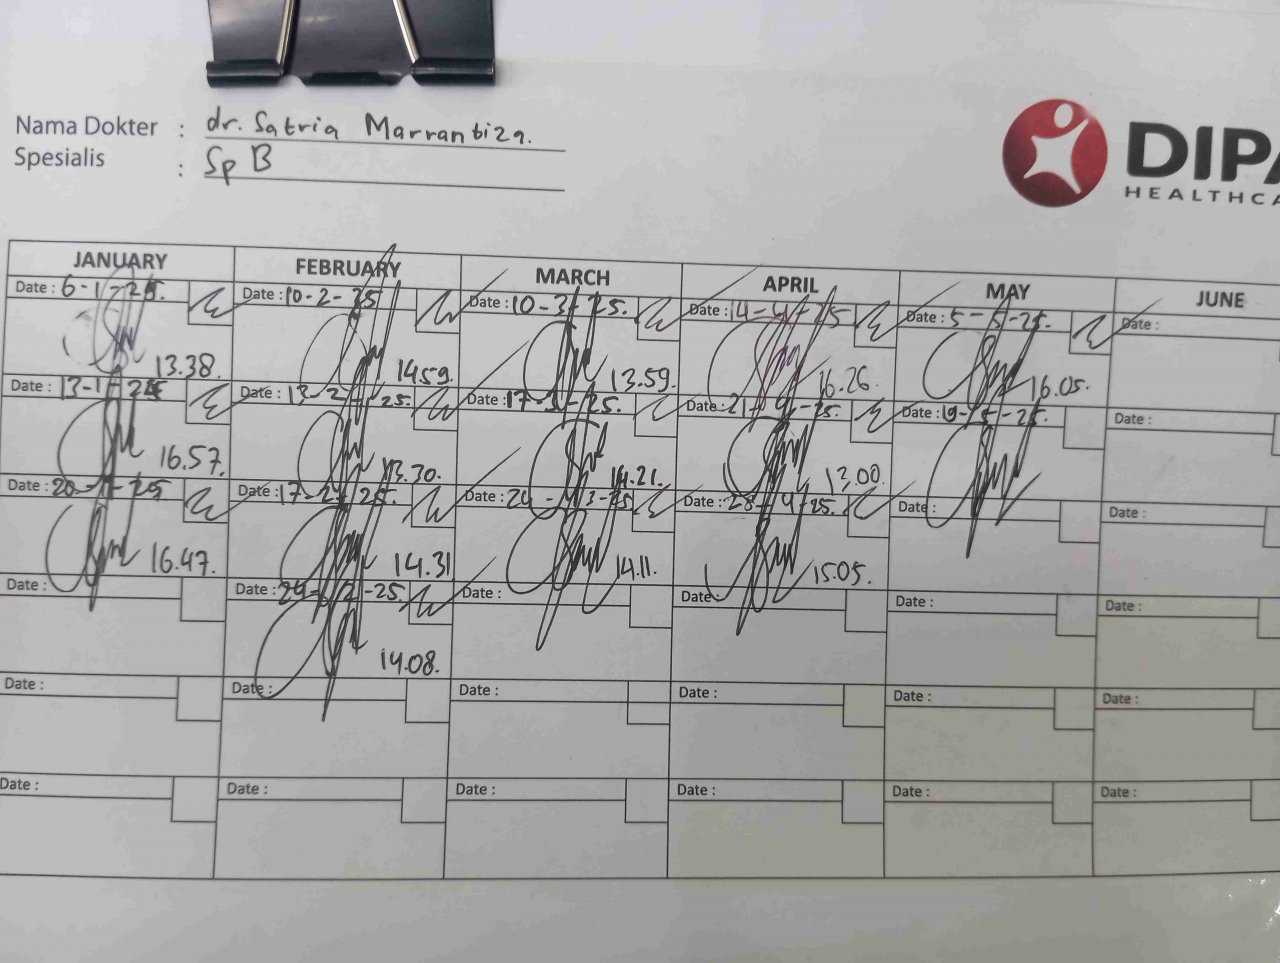 Nama Dokter : dr. Satria Marrantiza.
Spesialis : Sp B
DIPA
HEALTHCA
JANUARY FEBRUARY MARCH APRIL MAY JUNE
Date : 6-1-25. Date : 10-2-25 Date : 10-3-25. Date : 14-4-25 Date : 5-5-25. Date :
13.38. 14.59. 13.59. 16.26. 16.05.
Date : 13-1-25 Date : 13-2-25. Date : 17-3-25. Date : 21-4-25. Date : 19-5-25. Date :
16.57. 13.30. 14.21. 13.00.
Date : 20-1-25 Date : 17-2-25. Date : 24-3-25 Date : 28-4-25. Date : Date :
16.47. 14.31 14.11. 15.05.
Date : Date : 24-2-25. Date : Date : Date : Date :
14.08.
Date : Date : Date : Date : Date : Date :
Date : Date : Date : Date : Date : Date :